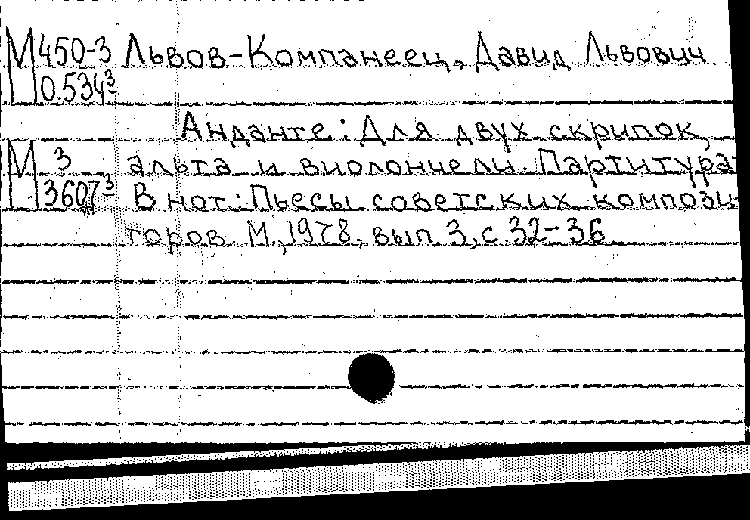 М450-3 Львов-Компанеец, Давид Львович
0.534³
Анданте: Для двух скрипок,
М 3 альта и виолончели. Партитура
3607³ В нот: Пьесы советских компози-
торов М, 1978, вып 3, с 32-36